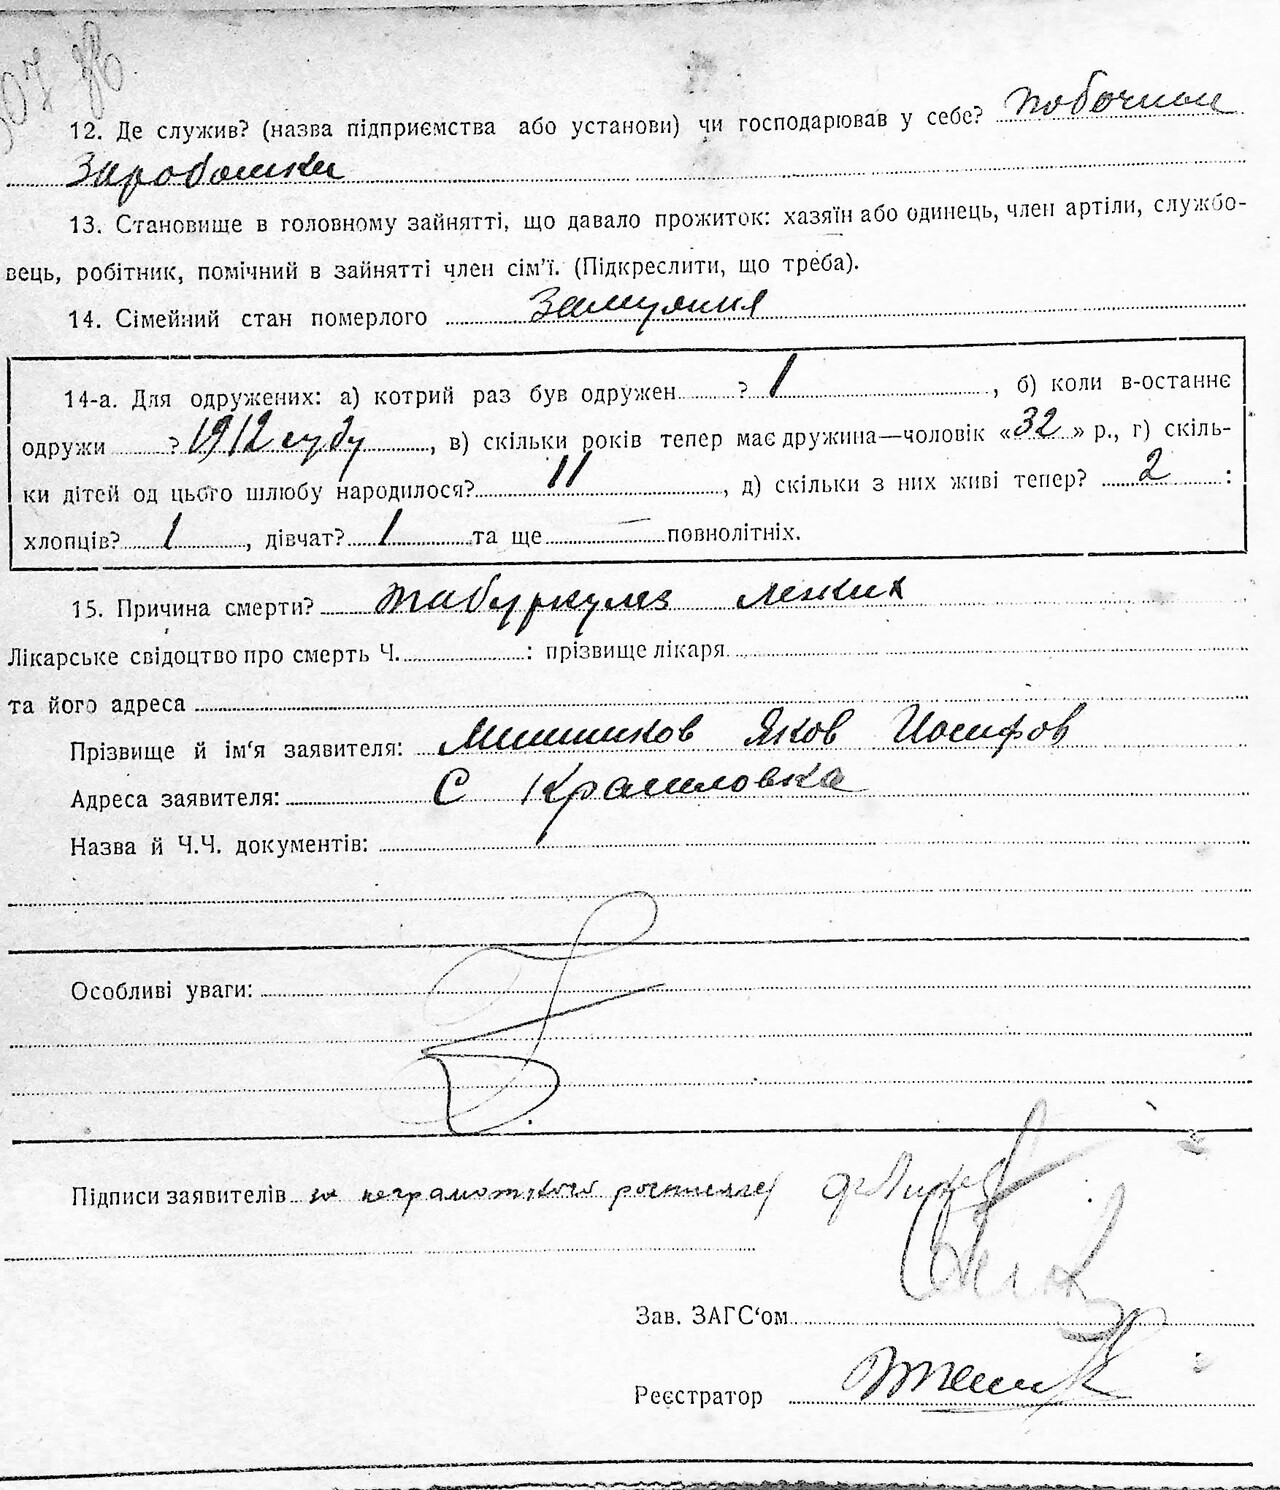 12. Де служив? (назва підприємства або установи) чи господарював у себе? побочные
Заработки
13. Становище в головному зайнятті, що давало прожиток: хазяїн або одинець, член артіли, службо-
вець, робітник, помічний в зайнятті член сім'ї. (Підкреслити, що треба).
14. Сімейний стан померлого Замужняя
14-а. Для одружених: а) котрий раз був одружен ? 1, б) коли в-останнє
одружи ? 1912 году, в) скільки років тепер має дружина—чоловік «32» р., г) скіль-
ки дітей од цього шлюбу народилося? 11, д) скільки з них живі тепер? 2 :
хлопців? 1, дівчат? 1 та ще — повнолітніх.
15. Причина смерти? табуркулез легких
Лікарське свідоцтво про смерть Ч. : прізвище лікаря
та його адреса
Прізвище й ім'я заявителя: Яков Иосифов
Адреса заявителя: С
Назва й Ч.Ч. документів:
Особливі уваги:
Підписи заявителів за неграмотного
Зав. ЗАГС'ом
Реєстратор